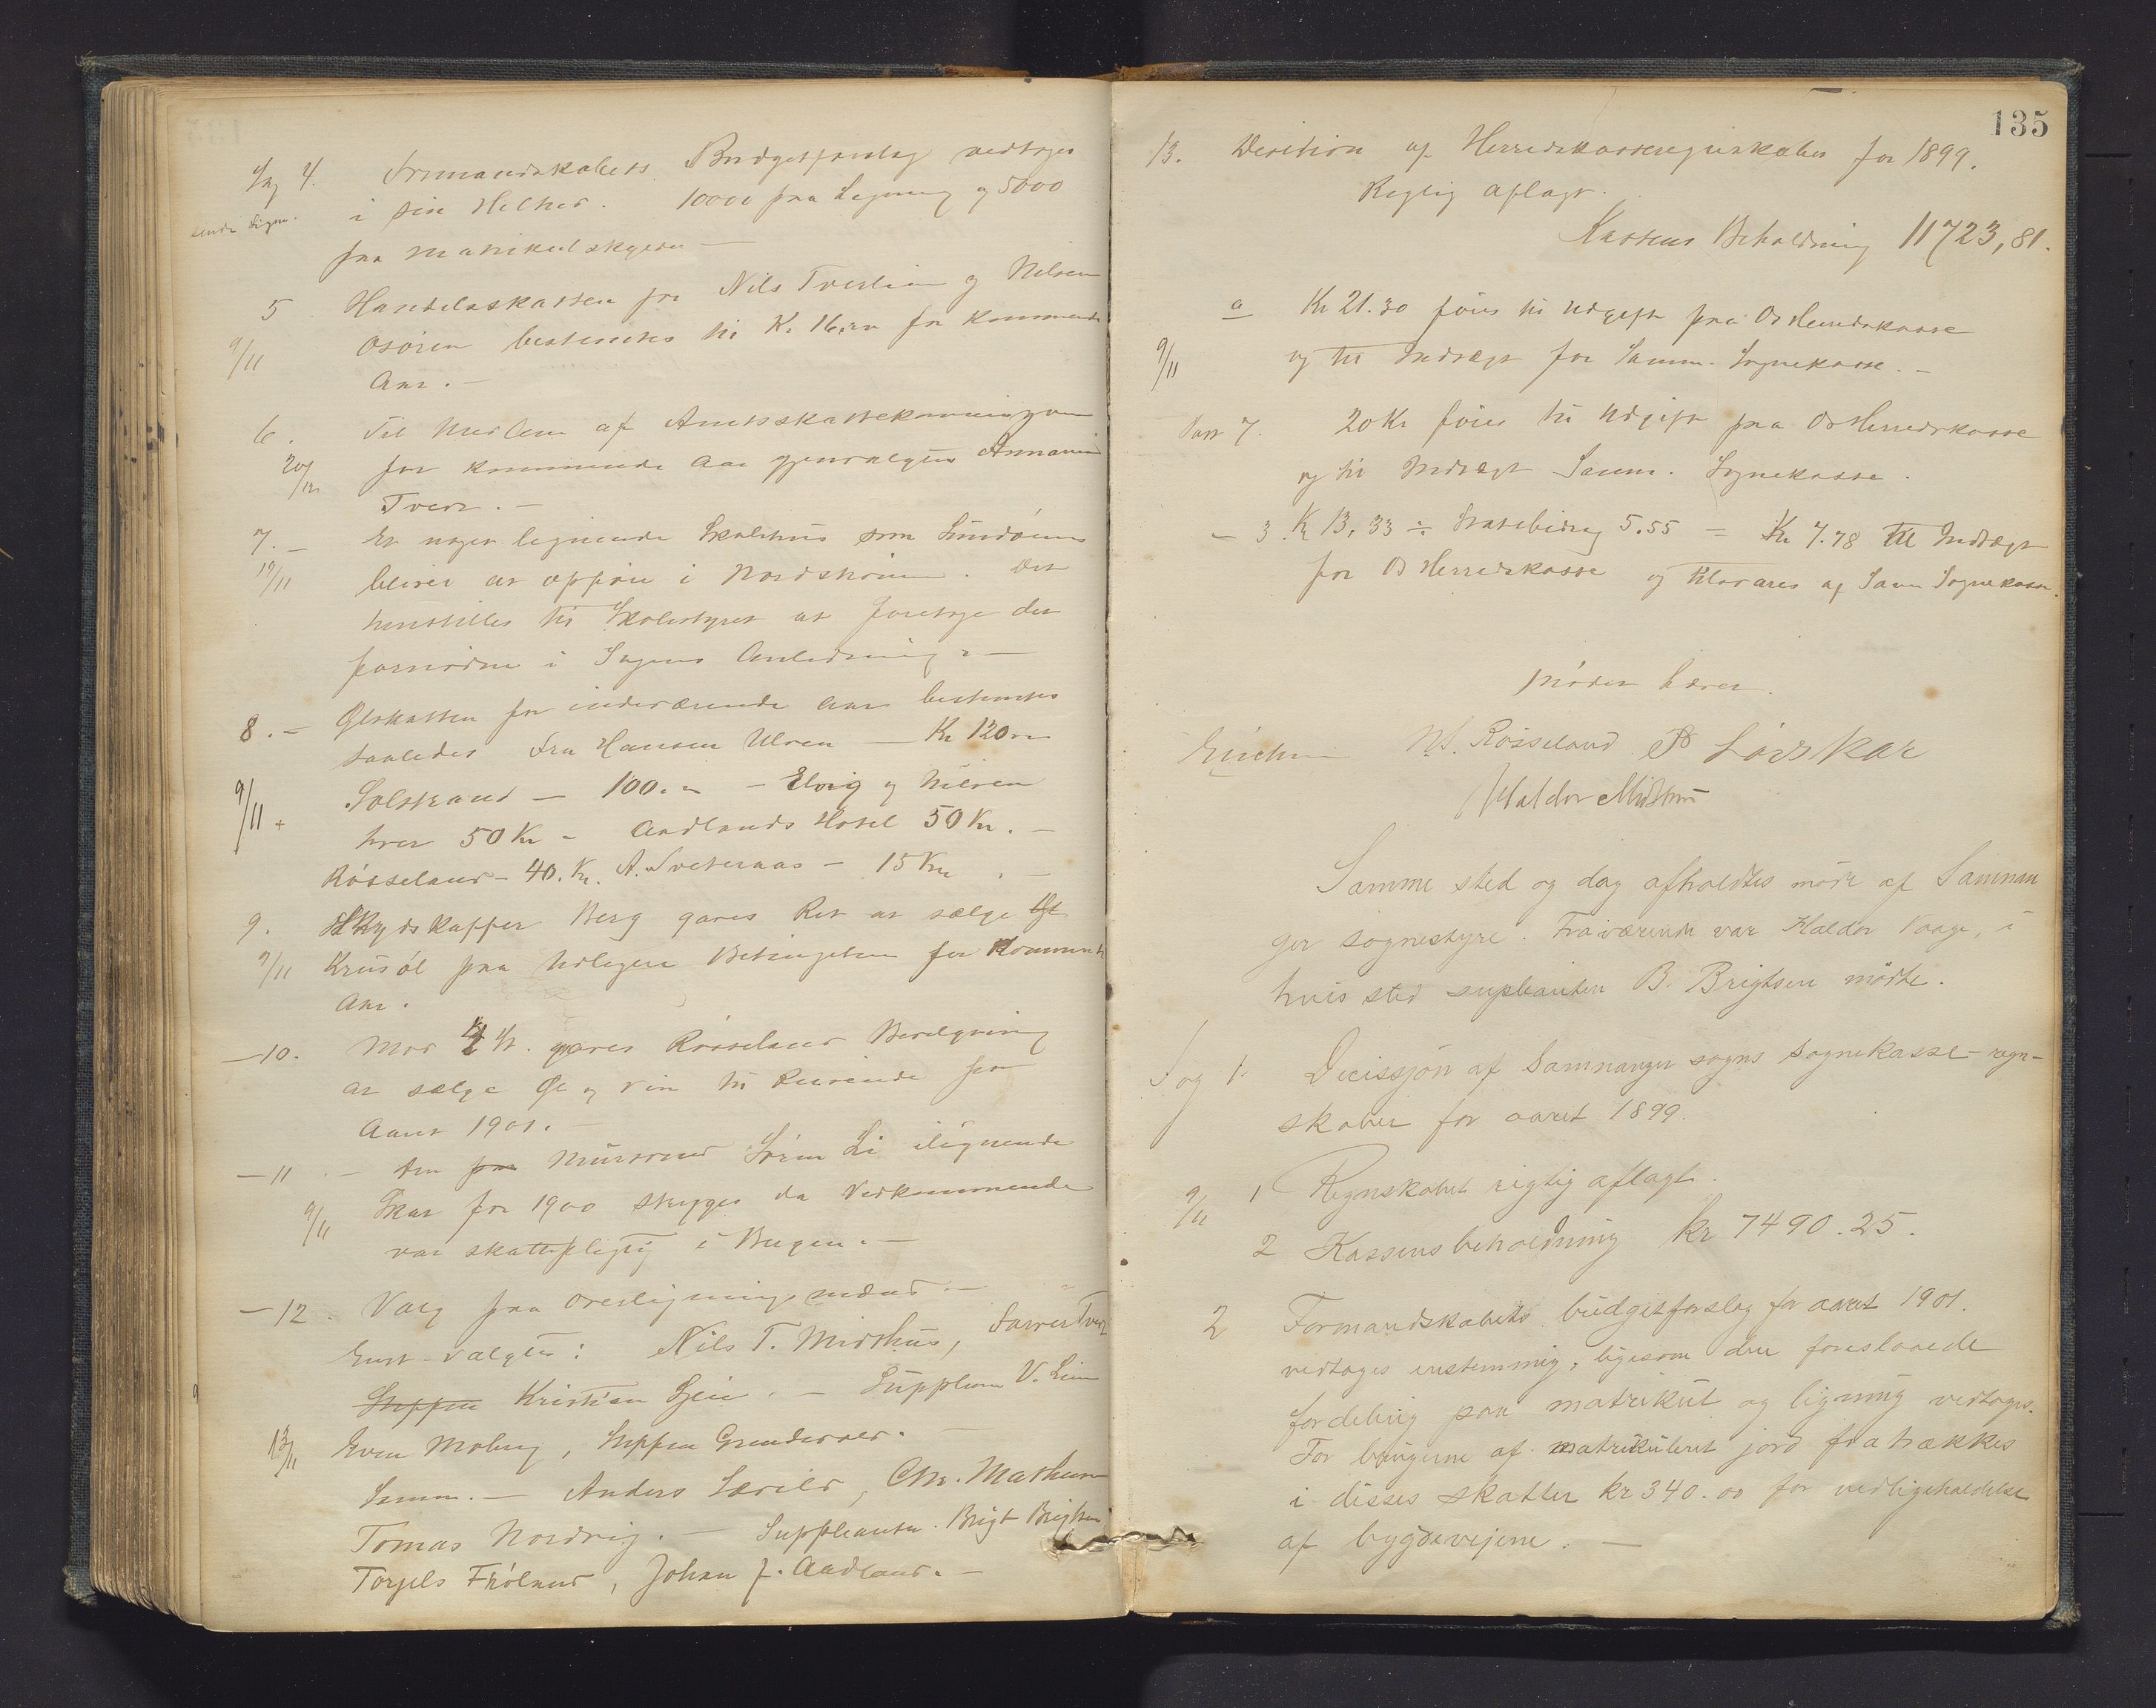 Sag 4. Formandskabets Budgetforslag vedtages
i sin Helhed. 10000 paa Ligning og 5000
sendt Lign.
paa Matrikulskylden —
5 Handelsskatten for Nils Tveilien og Nilsen
9/11 Osøren bestemtes til K. 16,00 for kommende
Aar. —
6. Til Medlem af Amtsskattekommissionen
20/12 for kommende Aar gjenvalgtes
Tveit. —
7. — Et noget lignende Skolehus som Lundøens
19/11 bliver at opføre i Nordstrønen. Det
henstilles til Skolestyret at foretage det
fornødne i Sagens Anledning. —
8. — Ølskatten for indeværende Aar bestemtes
saaledes Fru Hansen Ulven — Kr 120.00
9/11 + Solstrand — 100.00 — Elvig og Nilsen
hver 50 Kr — Aadlands Hotel 50 Kr. —
Røsseland — 40. Kr. A. Tveteraas — 15 Kr. —
9. Skydskaffer Berg gaves Ret at sælge Øl
9/11 Krusøl paa tidligere Betingelser for kommende
Aar.
— 10. Mod St. gaves Røsseland Bevilgning
at sælge Øl og Vin til Reisende for
Aaret 1901. —
— 11. — Den paa Murmand Søren Li ilignende
9/11 Skat for 1900 stryges da Vedkommende
var skattepligtig i Bergen. —
— 12. Valg paa Overligningsmænd. —
Enst. valgtes: Nils T. Midthus,
Steffen Kristian Gjeie. — Supplean V. Lien
13/11 Even Moberg, Steffen
Samn. — Anders , Chr. Mathiesen
Tomas Nordvig. — Suppleanter. Brigt Brigtsen
Torgils Frøland, Johan J. Aadland. —
135
13. Desition af Herredskasseregnskabet for 1899.
Rigtig aflagt.
Kassens Beholdning 11723,81.
a Kr 21.30 føres til Udgift paa Os Herredskasse
9/11 og til Indtægt for Samn. Sognekasse. —
Post 7. 20 Kr føres til Udgift paa Os Herredskasse
og til Indtægt Samn. Sognekasse.
— 3. Kr 13,33 ÷ Statsbidrag 5.55 = Kr 7.78 til Indtægt
for Os Herredskasse og tilsvares af Samn Sognekasse.
Mødet hævet.
N. Røsseland P Lønskar
Haldor Midttun
Samme sted og dag afholdtes møde af Samnan
ger sognestyre. Fraværende var Haldor Vaage, i
hvis sted supleanten B. Brigtsen mødte.
Sag 1. Decissjon af Samnanger sogns sognekasse-regn-
skaber for aaret 1899.
9/11 1 Regnskabet rigtig aflagt.
2 Kassens beholdning kr 7490.25.
2 Formandskabets budgetforslag for aaret 1901.
vedtages enstemmig, ligesom den foreslaaede
fordeling paa matrikul og ligning vedtages.
For brugerne af matrikuleret jord fratrækkes
i disses skatter kr 340.00 for vedligeholdelse
af bygdevejene. —